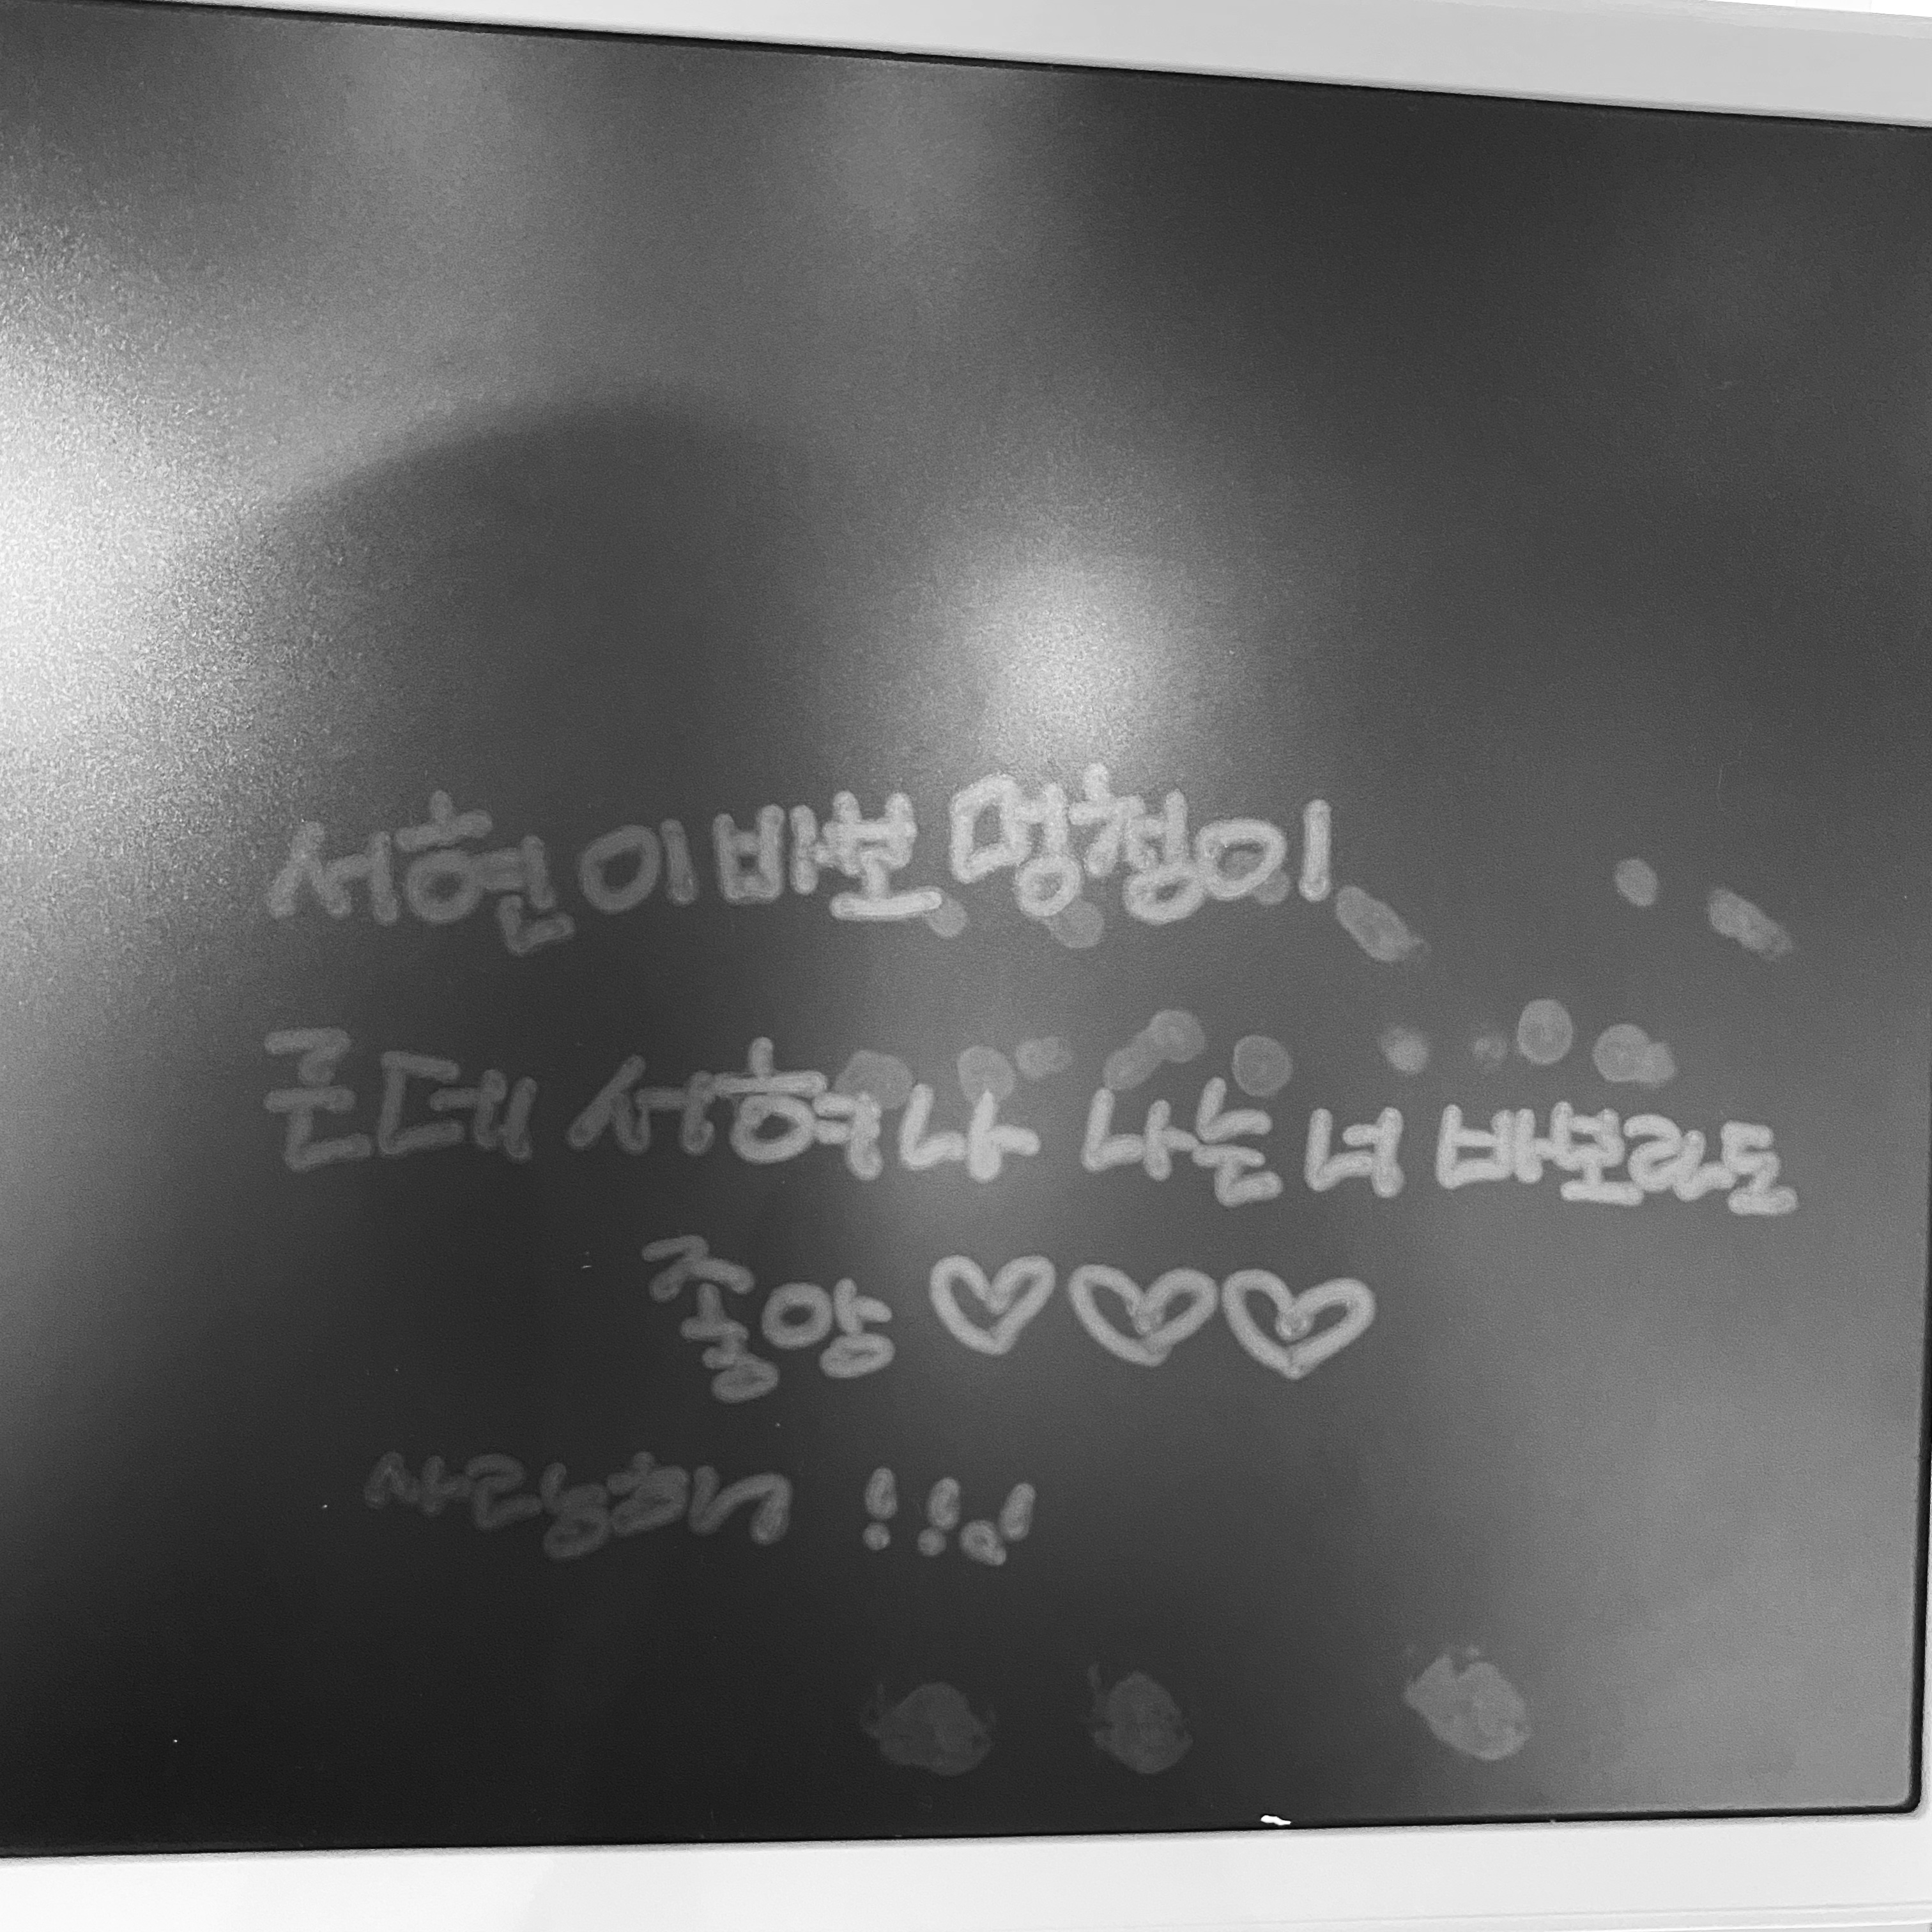 서현이 바보 멍청이
근데 서혀나 나는 너 바보라도
좋앙 ♡♡♡
사랑해 !!!